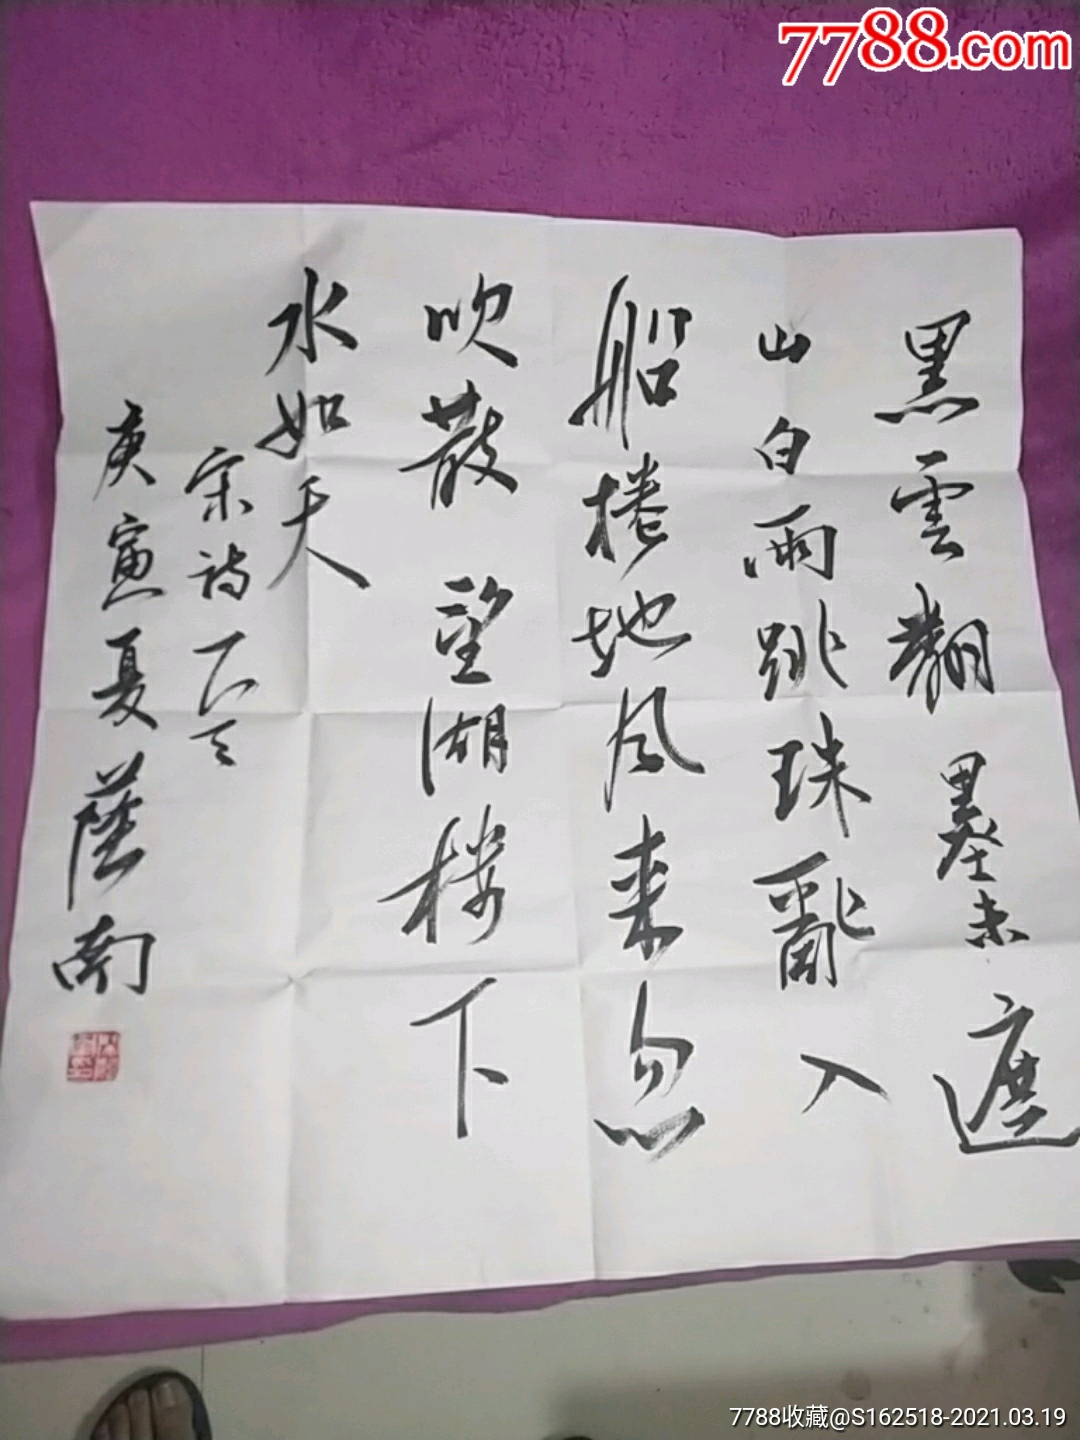 7788.com
黑雲翻墨未遮
山白雨跳珠亂入
船捲地風来忽
吹散望湖楼下
水如天
宋詩一首
庚寅夏蔭南
7788收藏@S162518-2021.03.19